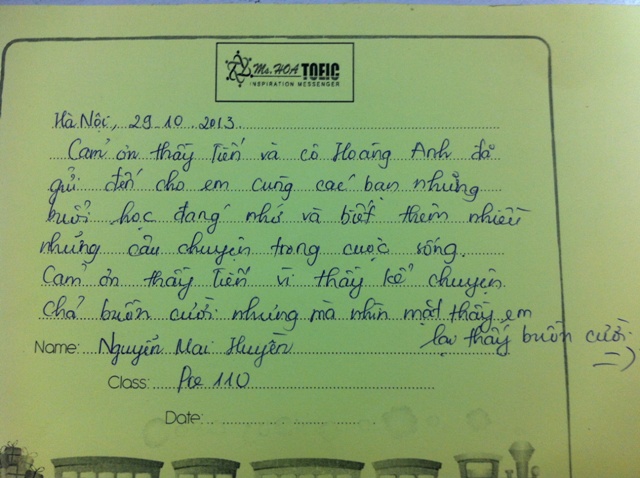 Ms. HOA TOEIC
INSPIRATION MESSENGER
Hà Nội, 29.10.2013.
Cảm ơn thầy Tiến và cô Hoàng Anh đã
gửi đến cho em cùng các bạn những
buổi học đáng nhớ và biết thêm nhiều
những câu chuyện trong cuộc sống.
Cảm ơn thầy Tiến vì thầy kể chuyện
chả buồn cười nhưng mà nhìn mặt thầy em
lại thấy buồn cười
=)
Name: Nguyễn Mai Huyền
Class: Pre 110
Date: